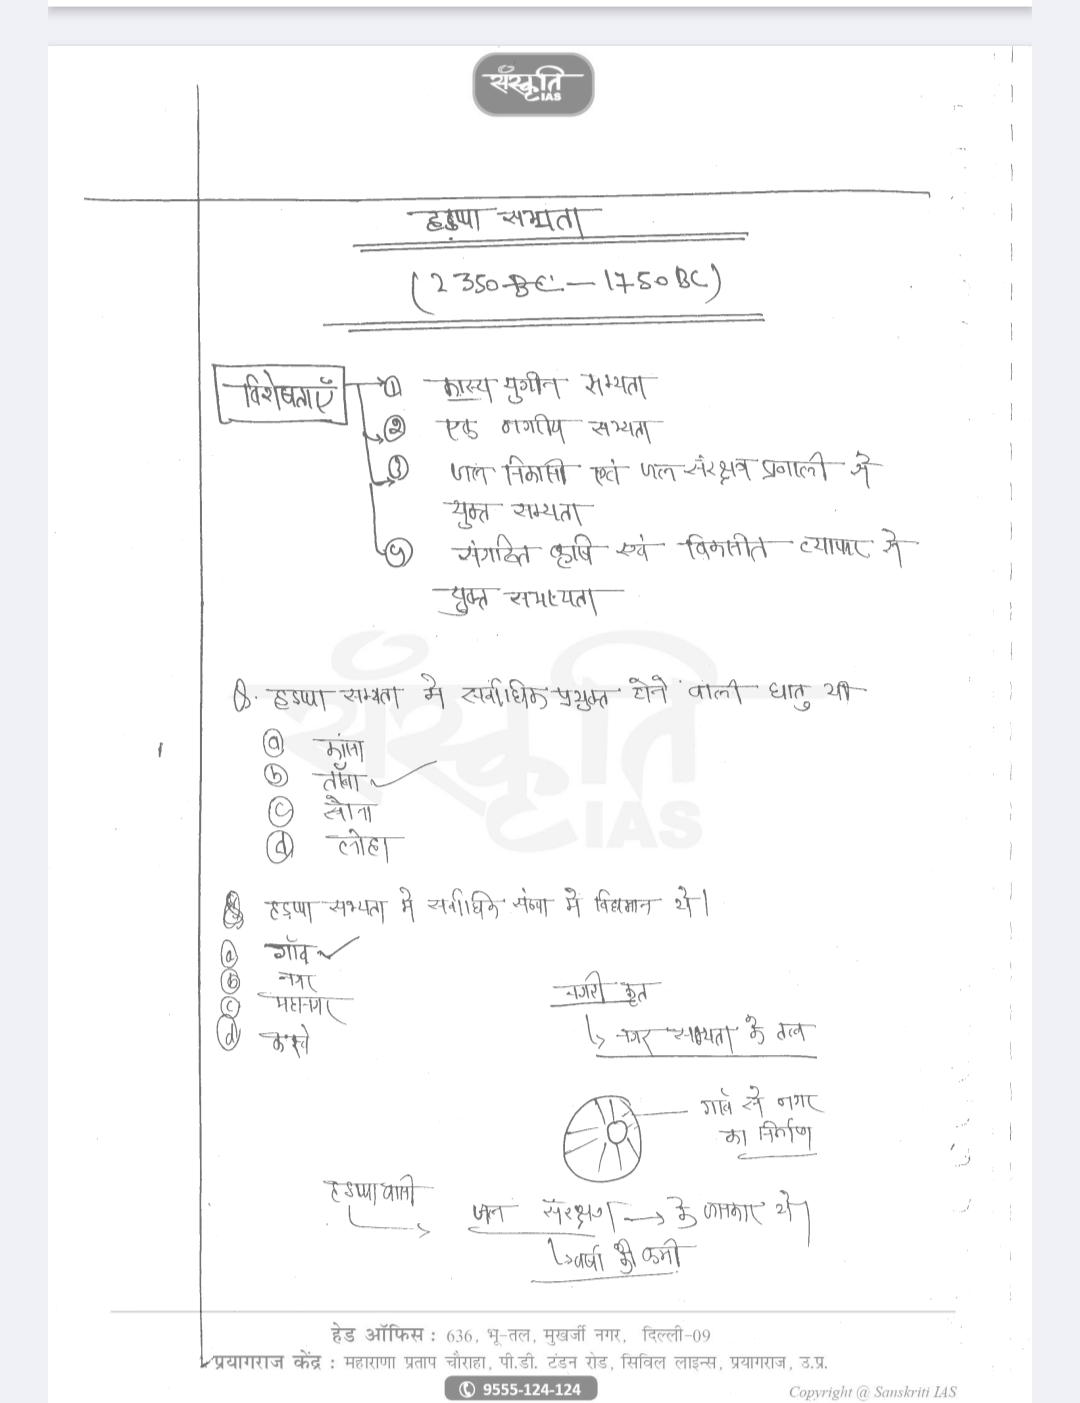 संस्कृति
IAS
हड़प्पा सभ्यता
(2350 BC - 1750 BC)
विशेषताएँ
① कास्य युगीन सभ्यता
② एक नगरीय सभ्यता
③ जल निकासी एवं जल संरक्षण प्रणाली से
युक्त सभ्यता
④ संगठित कृषि एवं विकसीत व्यापार से
युक्त सभ्यता
Q. हड़प्पा सभ्यता मे सर्वाधिक प्रयुक्त होने वाली धातु थी
ⓐ कांसा
ⓑ ताँबा ✓
ⓒ सोना
ⓓ लोहा
हड़प्पा सभ्यता मे सर्वाधिक संख्या मे विद्यमान थे।
ⓐ गाँव ✓
ⓑ नगर
ⓒ महानगर
ⓓ कस्बे
नगरी कृत
↳ नगर सभ्यता के तत्व
गाँव से नगर
का निर्माण
हड़प्पा वासी
जल संरक्षण → के जानकार थे।
↳ वर्षा की कमी
हेड ऑफिस : 636, भू-तल, मुखर्जी नगर, दिल्ली-09
प्रयागराज केंद्र : महाराणा प्रताप चौराहा, पी.डी. टंडन रोड, सिविल लाइन्स, प्रयागराज, उ.प्र.
9555-124-124
Copyright @ Sanskriti IAS